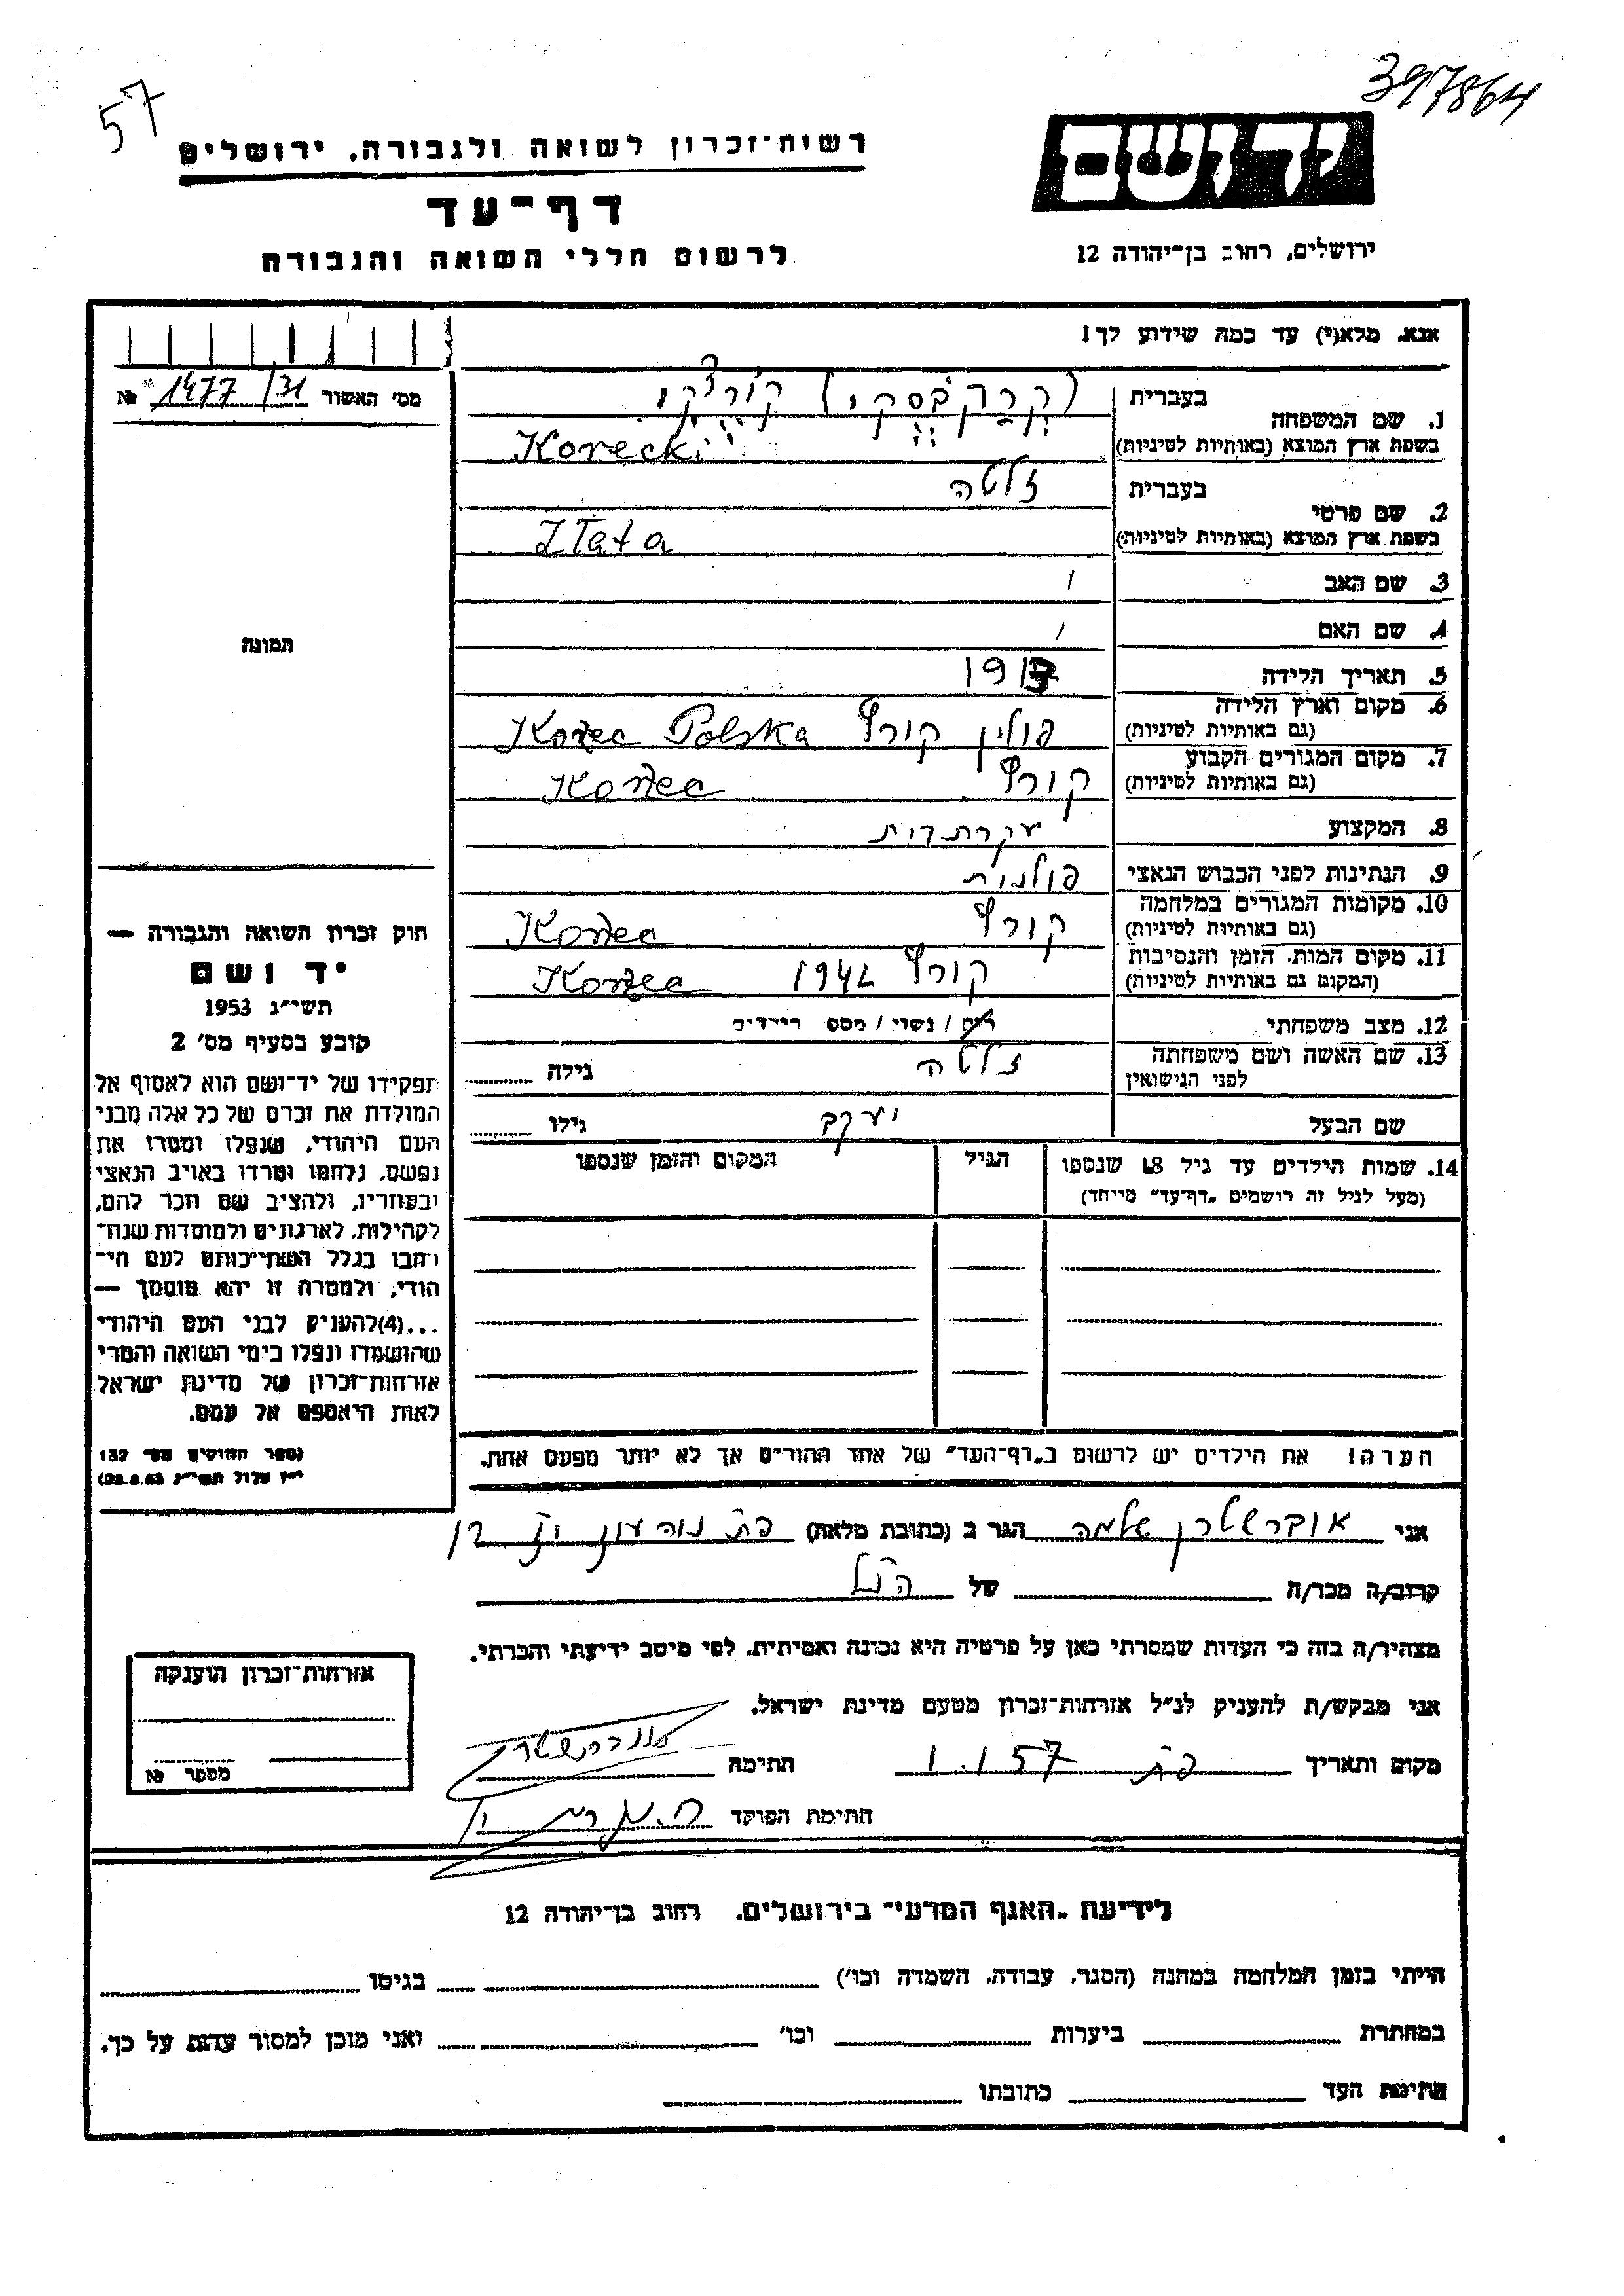 57
397864
רשות-זכרון לשואה ולגבורה, ירושלים
יד ושם
דף-עד
לרשום חללי השואה והגבורה
ירושלים, רחוב בן-יהודה 12
אנא, מלא(י) עד כמה שידוע לך!
מס׳ האשור 1477/31 №
1. שם המשפחה
בעברית קורצקי
בשפת ארץ המוצא (באותיות לטיניות) Korecki
2. שם פרטי
בעברית זלטה
בשפת ארץ המוצא (באותיות לטיניות) Zlata
3. שם האב /
4. שם האם /
5. תאריך הלידה
6. מקום וארץ הלידה
(גם באותיות לטיניות) פולין קורץ Korzec Polska
7. מקום המגורים הקבוע
(גם באותיות לטיניות) קורץ Korzec
8. המקצוע עקרת בית
9. הנתינות לפני הכבוש הנאצי פולנית
10. מקומות המגורים במלחמה
(גם באותיות לטיניות) קורץ Korzec
11. מקום המות, הזמן והנסיבות
(המקום גם באותיות לטיניות) קורץ 1942 Korzec
12. מצב משפחתי רוק / נשוי / מספר הילדים
13. שם האשה ושם משפחתה
לפני הנישואין זלטה גילה
שם הבעל יעקב גילו
14. שמות הילדים עד גיל 18 שנספו
(מעל לגיל זה רושמים „דף-עד״ מייחד)
הגיל
המקום והזמן שנספו
הערה! את הילדים יש לרשום ב„דף-העד״ של אחד ההורים אך לא יותר מפעם אחת.
תמונה
חוק זכרון השואה והגבורה —
יד ושם
תשי״ג 1953
קובע בסעיף מס׳ 2
תפקידו של יד-ושם הוא לאסוף אל
המולדת את זכרם של כל אלה מבני
העם היהודי, שנפלו ומסרו את
נפשם, נלחמו ומרדו באויב הנאצי
ובעוזריו, ולהציב שם וזכר להם,
לקהילות, לארגונים ולמוסדות שנח־
רבו בגלל השתייכותם לעם הי־
הודי, ולמטרה זו יהא מוסמך —
...(4)להעניק לבני העם היהודי
שהושמדו ונפלו בימי השואה והמרי
אזרחות-זכרון של מדינת ישראל
לאות היאספם אל עמם.
(ספר החוקים מס׳ 132
י״ז אלול תשי״ג 28.8.53)
אני אוברשטרן שלמה הגר ב (כתובת מלאה)
קרוב/ה מכר/ה של הנ״ל
מצהיר/ה בזה כי העדות שמסרתי כאן על פרטיה היא נכונה ואמיתית, לפי מיטב ידיעתי והכרתי.
אני מבקש/ת להעניק לנ״ל אזרחות-זכרון מטעם מדינת ישראל.
מקום ותאריך 1.1 57 חתימה אוברשטרן
חתימת הפוקד
אזרחות-זכרון הוענקה
מספר №
לידיעת „האגף המדעי״ בירושלים, רחוב בן-יהודה 12
הייתי בזמן המלחמה במחנה (הסגר, עבודה, השמדה וכו׳) בגיטו
במחתרת ביערות וכו׳ ואני מוכן למסור עדות על כך.
חתימת העד כתובתו